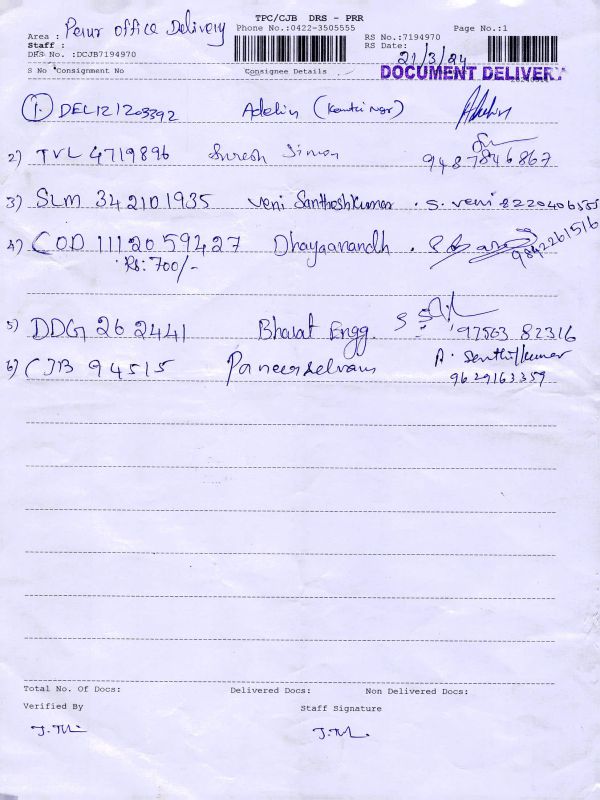 TPC/CJB DRS - PRR
Area : Perur office Delivery Phone No.:0422-3505555 RS No.:7194970 Page No.:1
Staff : RS Date: 21/3/24
DRS No. :DCJB7194970 DOCUMENT DELIVERY
S No Consignment No Consignee Details
1. DEL121203392 Adelin
2) TVL 4719896 Suresh Simon 9487846867
3) SLM 342101935 Veni Santhoshkumar . S. Veni 8220406555
4) COD 1112059427 Dhayaanandh . 9842261516
Rs: 700/-
5) DDG 262441 Bharat Engg. 97503 82316
6) CJB 94515 Paneerselvam A. Senthilkumar
9629163359
Total No. Of Docs: Delivered Docs: Non Delivered Docs:
Verified By Staff Signature